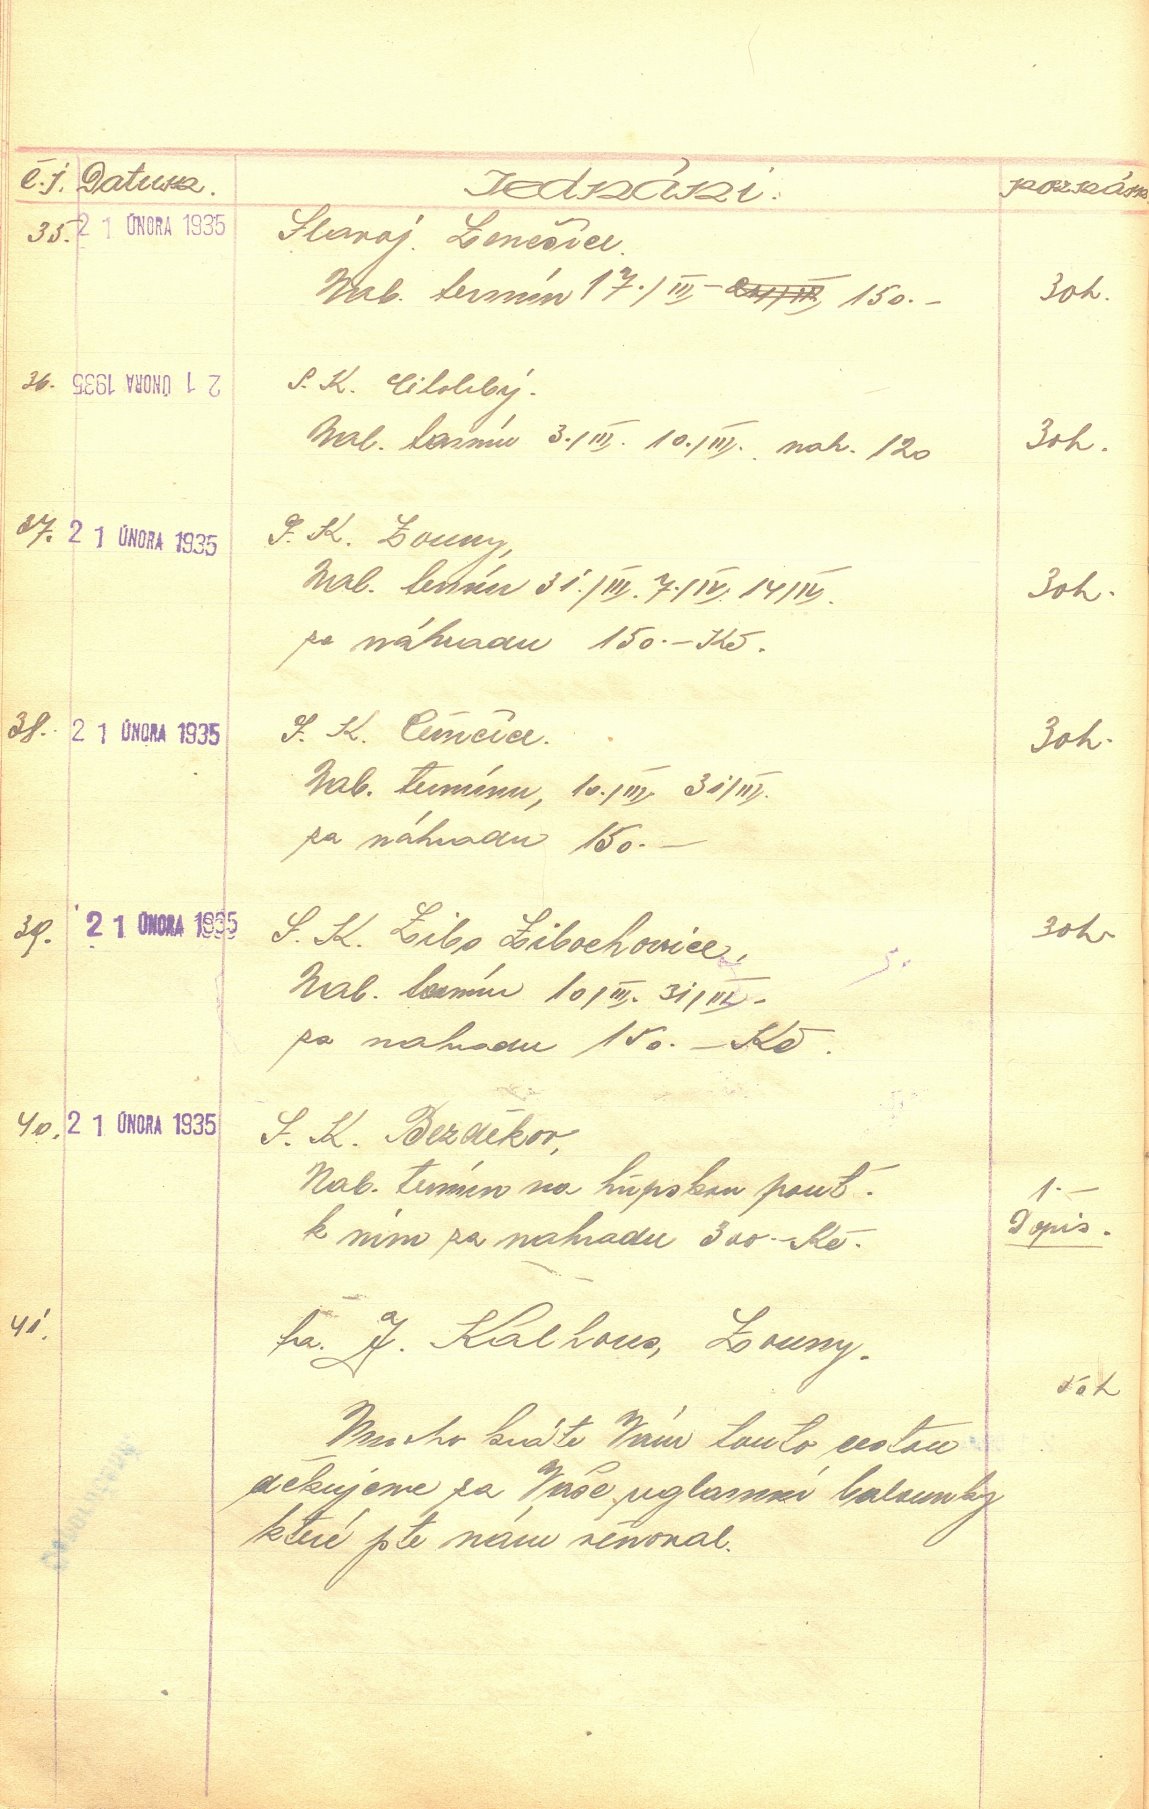 č.j. Datum. Jednání. poznám
35. 21 ÚNORA 1935 Slavoj. Lenešice.
Nab. termín 17./III - 150.- 30h.
36. 21 ÚNORA 1935 S. K. Citoliby.
Nab. termín 3./III. 10./III. nah. 120 30h.
37. 21 ÚNORA 1935 S. K. Louny,
Nab. termín 31./III. 7./IV. 14/IV. 30h.
za náhradu 150.- Kč.
38. 21 ÚNORA 1935 S. K. Cínčice. 30h.
Nab. termínu, 10./III. 31/III.
za náhradu 150.-
39. 21 ÚNORA 1935 S. K. Libo Libochovice, 30h.
Nab. termín 10/III. 31/III.-
za nahradu 150.- Kč.
40. 21 ÚNORA 1935 S. K. Bezděkov,
Nab. termín na pouť. 1.-
k ním za nahradu 300.- Kč. Dopis.
41. fa. J. Kalhous, Louny.
Mnoho kráte Vám touto cestou
děkujeme za Vaše reglamní
které pte nám věnoval.